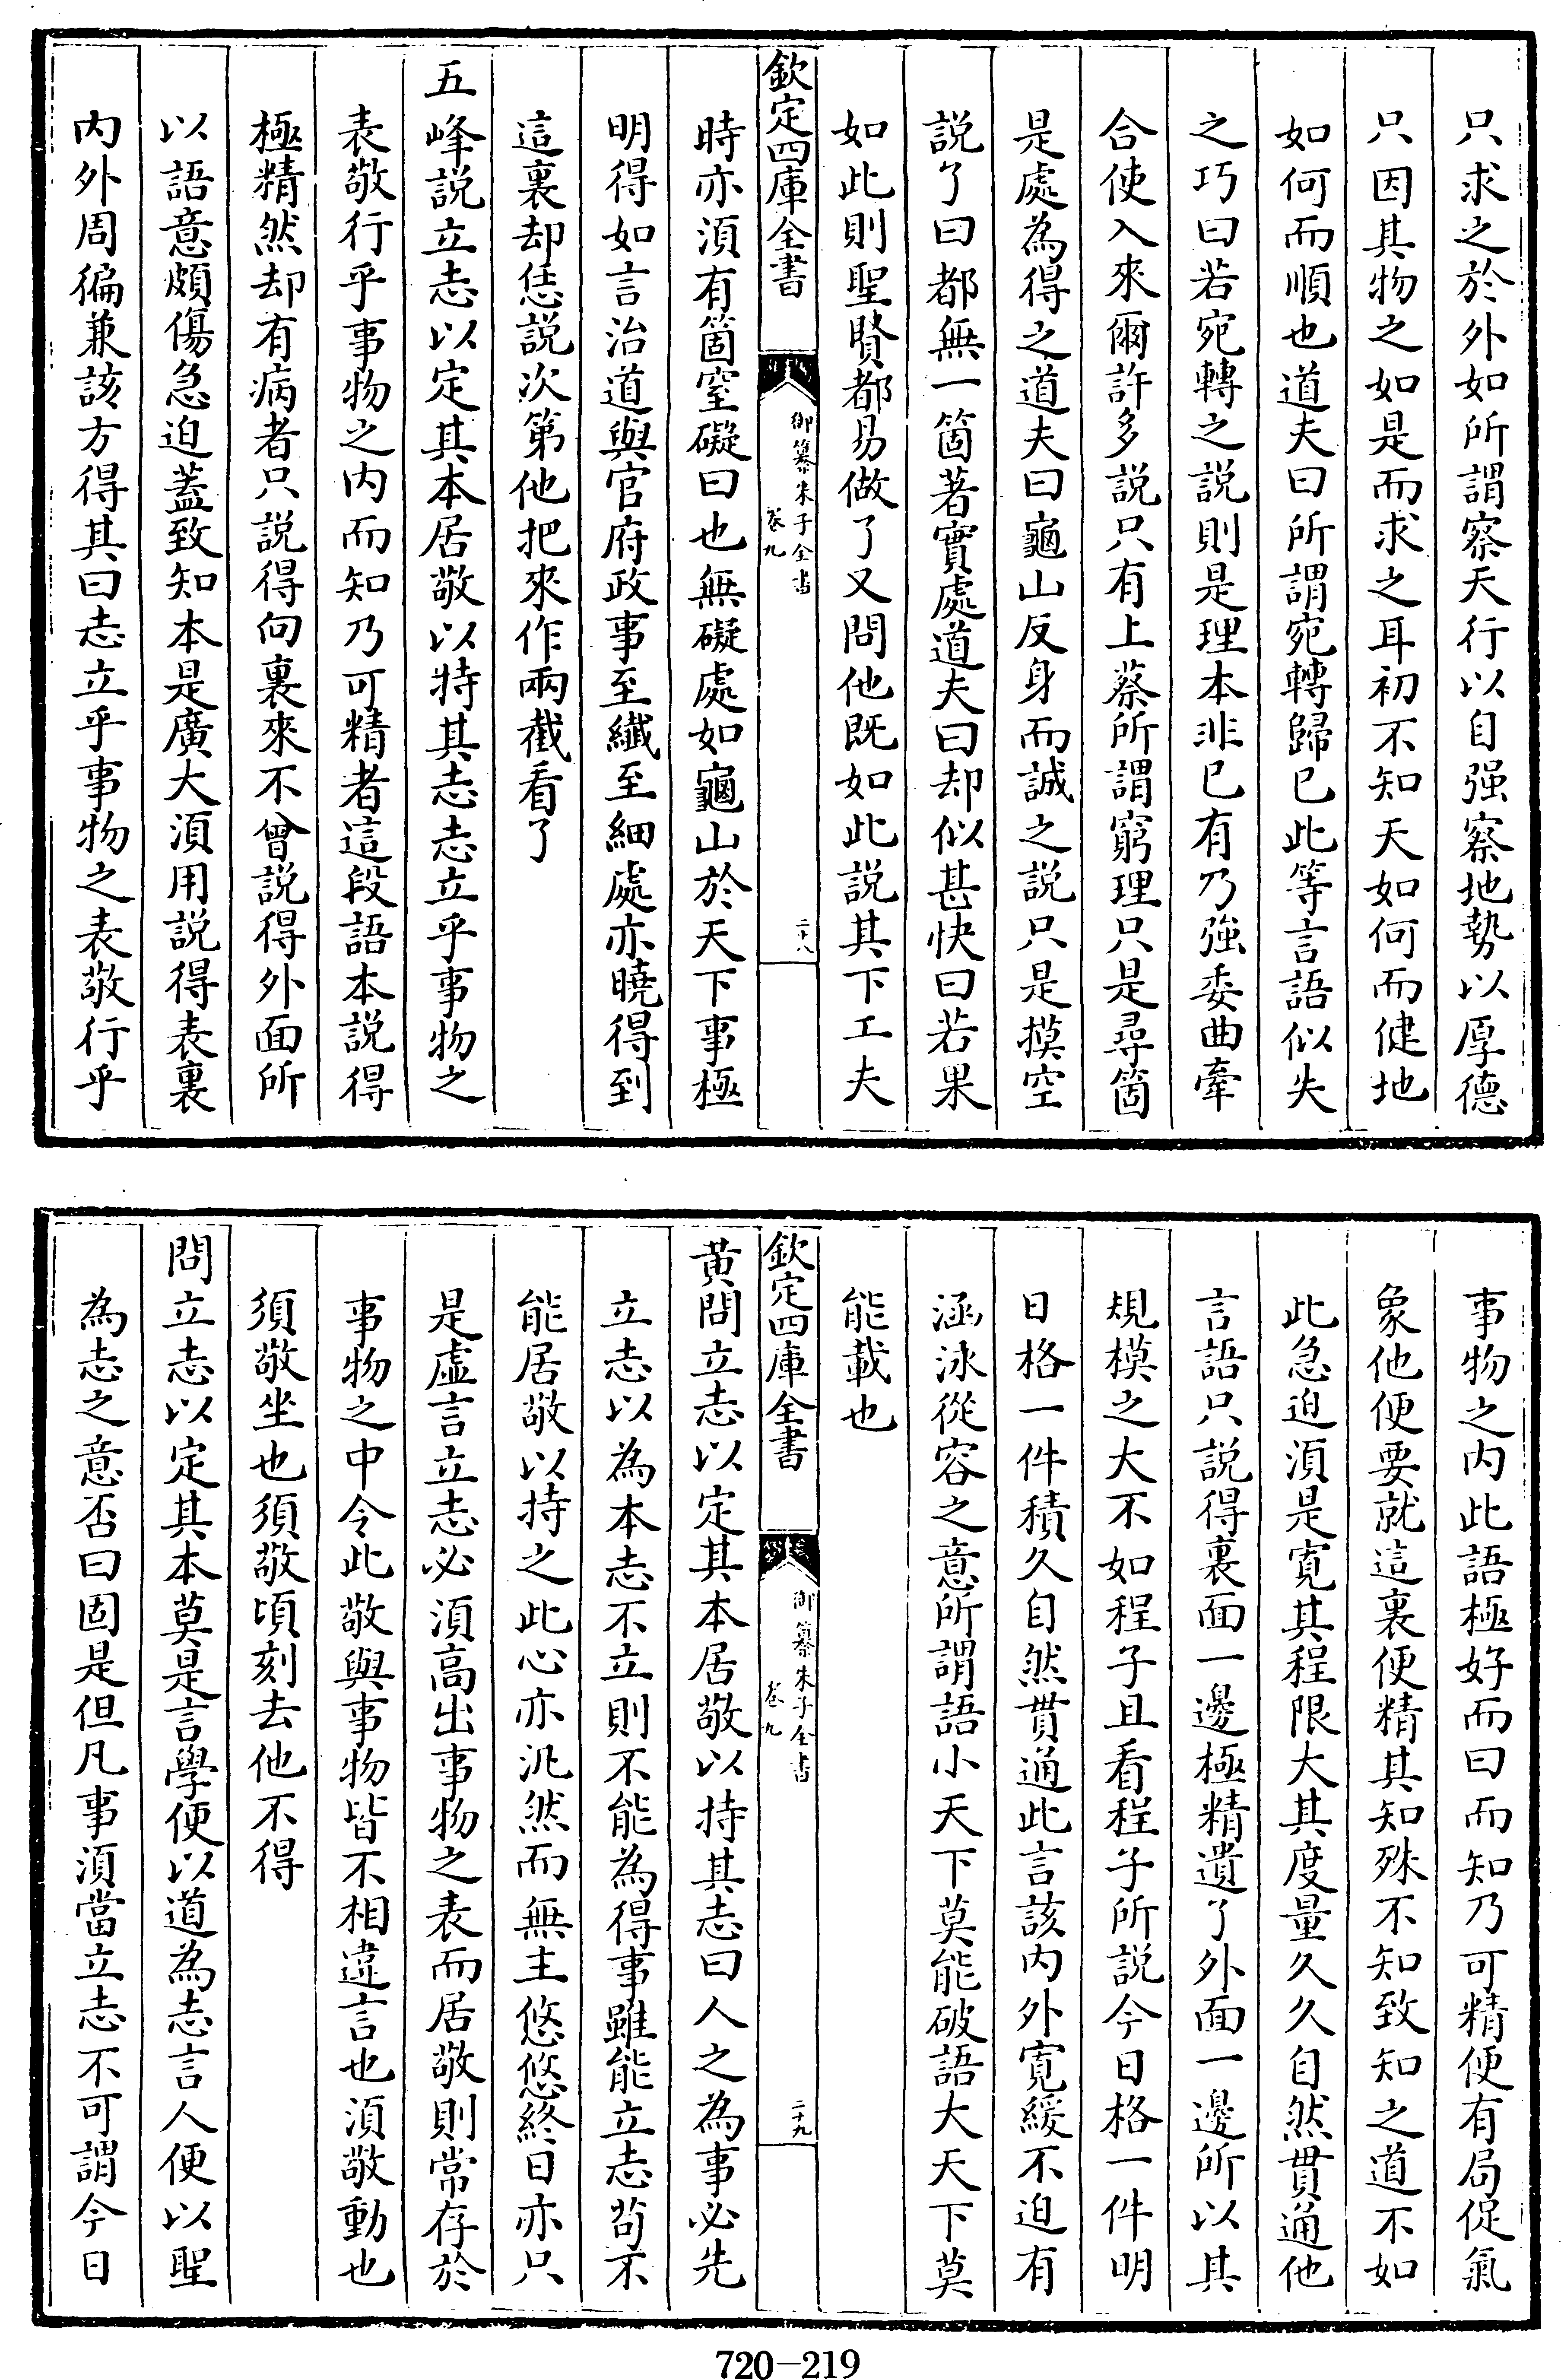 只求之於外如所謂察天行以自强察地勢以厚德
只因其物之如是而求之耳初不知天如何而健地
如何而順也道夫曰所謂宛轉歸已此等言語似失
之巧曰若宛轉之説則是理本非已有乃強委曲牽
合使入來爾許多説只有上蔡所謂窮理只是尋箇
是處為得之道夫曰龜山反身而誠之説只是摸空
説了曰都無一箇著實處道夫曰却似甚快曰若果
如此則聖賢都易做了又問他既如此説其下工夫
欽定四庫全書
御纂朱子全書
卷九
二十八
時亦須有箇窒礙曰也無礙處如龜山於天下事極
明得如言治道與官府政事至纖至細處亦曉得到
這裏却恁説次第他把來作兩截看了
五峰説立志以定其本居敬以持其志志立乎事物之
表敬行乎事物之内而知乃可精者這段語本説得
極精然却有病者只説得向裏來不曾説得外面所
以語意頗傷急迫蓋致知本是廣大須用説得表裏
内外周徧兼該方得其曰志立乎事物之表敬行乎
事物之内此語極好而曰而知乃可精便有局促氣
象他便要就這裏便精其知殊不知致知之道不如
此急迫須是寛其程限大其度量久久自然貫通他
言語只説得裏面一邊極精遺了外面一邊所以其
規模之大不如程子且看程子所説今日格一件明
日格一件積久自然貫通此言該内外寛緩不迫有
涵泳從容之意所謂語小天下莫能破語大天下莫
能載也
欽定四庫全書
御纂朱子全書
卷九
二十九
黄問立志以定其本居敬以持其志曰人之為事必先
立志以為本志不立則不能為得事雖能立志茍不
能居敬以持之此心亦汎然而無主悠悠終日亦只
是虚言立志必須高出事物之表而居敬則常存於
事物之中令此敬與事物皆不相違言也須敬動也
須敬坐也須敬頃刻去他不得
問立志以定其本莫是言學便以道為志言人便以聖
為志之意否曰固是但凡事須當立志不可謂今日
720-219